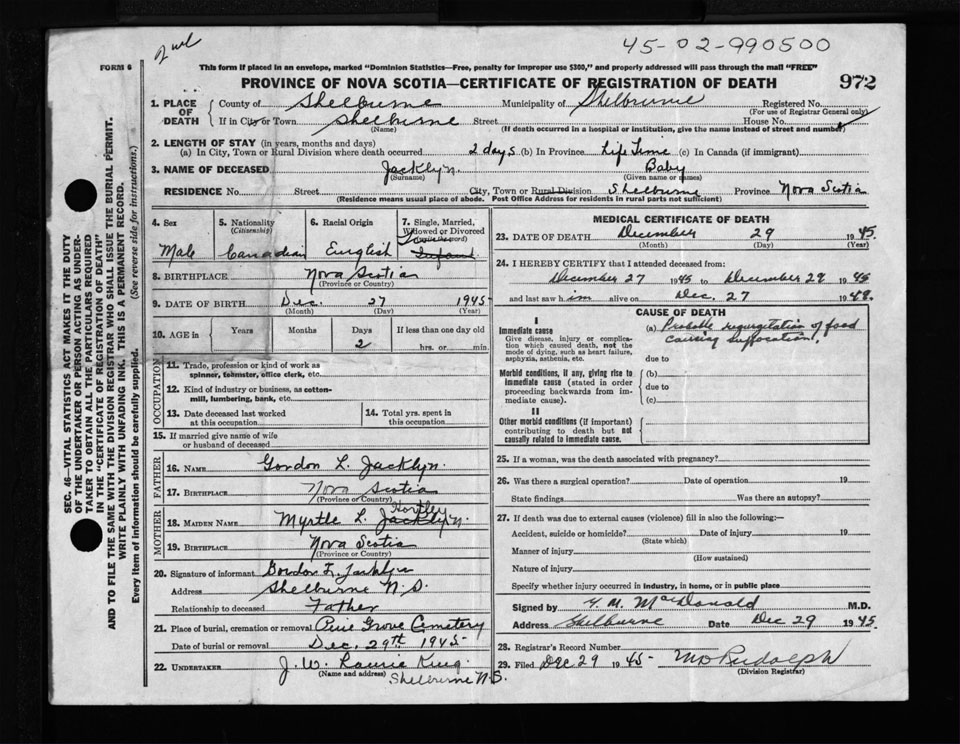 45-02-990500
FORM 6
This form if placed in an envelope, marked "Dominion Statistics—Free, penalty for improper use $300," and properly addressed will pass through the mail "FREE"
PROVINCE OF NOVA SCOTIA—CERTIFICATE OF REGISTRATION OF DEATH 972
SEC. 46—VITAL STATISTICS ACT MAKES IT THE DUTY
OF THE UNDERTAKER OR PERSON ACTING AS UNDER-
TAKER TO OBTAIN ALL THE PARTICULARS REQUIRED
IN THE "CERTIFICATE OF REGISTRATION OF DEATH"
AND TO FILE THE SAME WITH THE DIVISION REGISTRAR WHO SHALL ISSUE THE BURIAL PERMIT.
WRITE PLAINLY WITH UNFADING INK. THIS IS A PERMANENT RECORD.
Every item of information should be carefully supplied. (See reverse side for instructions.)
1. PLACE OF DEATH County of Shelburne Municipality of Shelburne Registered No.
(For use of Registrar General only)
If in City or Town Shelburne Street House No.
(Name) (If death occurred in a hospital or institution, give the name instead of street and number)
2. LENGTH OF STAY (in years, months and days)
(a) In City, Town or Rural Division where death occurred 2 days (b) In Province Life Time (c) In Canada (if immigrant)
3. NAME OF DECEASED Jacklyn. Baby
(Surname) (Given name or names)
RESIDENCE No. Street City, Town or Rural Division Shelburne Province Nova Scotia
(Residence means usual place of abode. Post Office Address for residents in rural parts not sufficient)
4. Sex 5. Nationality 6. Racial Origin 7. Single, Married,
(Citizenship) Widowed or Divorced
(write the word)
Male Canadian English Infant
8. BIRTHPLACE Nova Scotia
(Province or Country)
9. DATE OF BIRTH Dec. 27 1945
(Month) (Day) (Year)
10. AGE in Years Months Days If less than one day old
2 hrs. or min.
OCCUPATION
11. Trade, profession or kind of work as
spinner, teamster, office clerk, etc.
12. Kind of industry or business, as cotton-
mill, lumbering, bank, etc.
13. Date deceased last worked 14. Total yrs. spent in
at this occupation this occupation
15. If married give name of wife
or husband of deceased
FATHER
16. NAME Gordon L. Jacklyn.
17. BIRTHPLACE Nova Scotia
(Province or Country)
MOTHER
Hartley
18. MAIDEN NAME Myrtle L. Jacklyn.
19. BIRTHPLACE Nova Scotia
(Province or Country)
20. Signature of informant Gordon L. Jacklyn
Address Shelburne N.S.
Relationship to deceased Father
21. Place of burial, cremation or removal Pine Grove Cemetery
Date of burial or removal Dec. 29th 1945
22. UNDERTAKER J. W. Laurie King
(Name and address) Shelburne N.S.
MEDICAL CERTIFICATE OF DEATH
23. DATE OF DEATH December 29 1945
(Month) (Day) (Year)
24. I HEREBY CERTIFY that I attended deceased from:
December 27 1945 to December 29 1945
and last saw him alive on Dec. 27 194
CAUSE OF DEATH
I
Immediate cause (a) Probable regurgitation of food
causing suffocation.
Give disease, injury or complica-
tion which caused death, not the
mode of dying, such as heart failure,
asphyxia, asthenia, etc. due to
Morbid conditions, if any, giving rise to (b)
immediate cause (stated in order due to
proceeding backwards from im-
mediate cause). (c)
II
Other morbid conditions (if important)
contributing to death but not
causally related to immediate cause.
25. If a woman, was the death associated with pregnancy?
26. Was there a surgical operation? Date of operation 19
State findings Was there an autopsy?
27. If death was due to external causes (violence) fill in also the following:—
Accident, suicide or homicide? Date of injury 19
(State which)
Manner of injury
(How sustained)
Nature of injury
Specify whether injury occurred in industry, in home, or in public place
Signed by MacDonald M.D.
Address Shelburne Date Dec 29 1945
28. Registrar's Record Number
29. Filed Dec 29 1945 Rudolph
(Division Registrar)